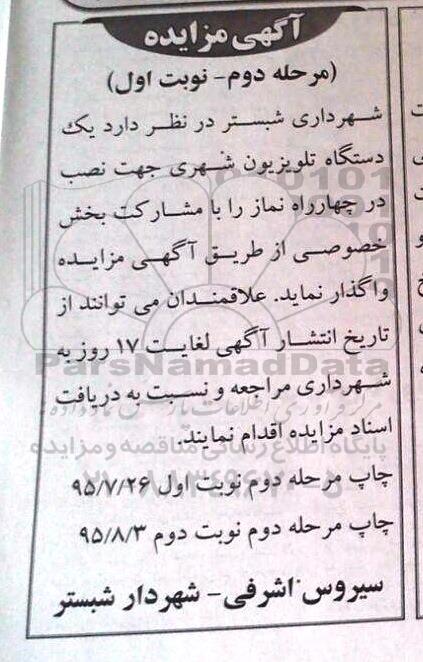 آگهی مزایده
(مرحله دوم- نوبت اول)
شهرداری شبستر در نظر دارد یک
دستگاه تلویزیون شهری جهت نصب
در چهارراه نماز را با مشارکت بخش
خصوصی از طریق آگهی مزایده
واگذار نماید. علاقمندان می توانند از
تاریخ انتشار آگهی لغایت ۱۷ روز به
شهرداری مراجعه و نسبت به دریافت
اسناد مزایده اقدام نمایند.
چاپ مرحله دوم نوبت اول ۹۵/۷/۲۶
چاپ مرحله دوم نوبت دوم ۹۵/۸/۳
سیروس اشرفی- شهردار شبستر
ParsNamadData
پایگاه اطلاع رسانی مناقصه و مزایده